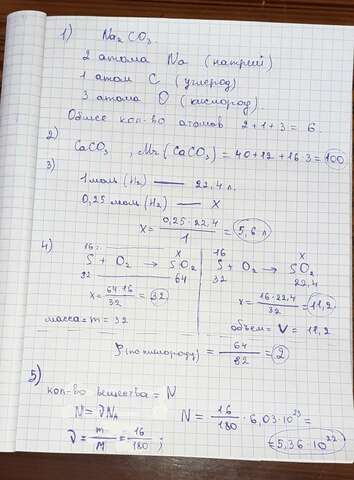 1) Na₂CO₃.
2 атома Na (натрий)
1 атом С (углерод)
3 атома О (кислород).
Общее кол-во атомов 2+1+3 = 6
2) CaCO₃, Mr(CaCO₃) = 40+12+16·3 = 100
3)
1 моль (H₂) — 22,4 л.
0,25 моль (H₂) — x
x = 0,25·22,4 / 1 = 5,6 л
4) 16 x
S + O₂ → SO₂
32 64
x = 64·16 / 32 = 32
масса = m = 32
16 x
S + O₂ → SO₂
32 22,4
x = 16·22,4 / 32 = 11,2
объем = V = 11,2
ρ (по кислороду) = 64 / 32 = 2
5)
кол-во вещества = N
N = νNA
ν = m / M = 16 / 180;
N = 16 / 180 · 6,03·10²³ =
= 5,36·10²²